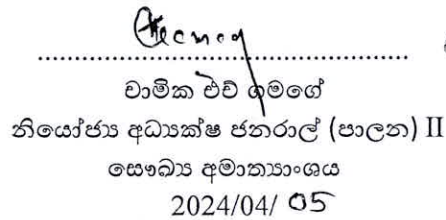 චාමික එච් ගමගේ
නියෝජ්‍ය අධ්‍යක්ෂ ජනරාල් (පාලන) II
සෞඛ්‍ය අමාත්‍යාංශය
2024/04/ 05